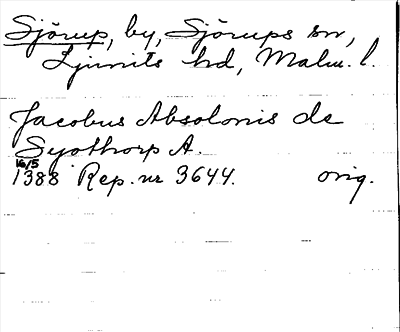 Sjörup, by, Sjörups sn,
Ljunits hd, Malm. l.
Jacobus Absolonis de
Syothorp A.
16/5
1388 Rep. nr 3644. orig.